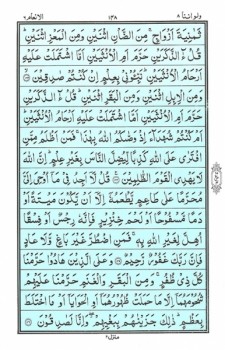 ولو اننا ٨ ١٣٨ الانعام ٦
ثَمٰنِيَةَ اَزْوَاجٍ ۚ مِنَ الضَّاْنِ اثْنَيْنِ وَمِنَ الْمَعْزِ اثْنَيْنِ ؕ
قُلْ ءٰٓالذَّكَرَيْنِ حَرَّمَ اَمِ الْاُنْثَيَيْنِ اَمَّا اشْتَمَلَتْ عَلَيْهِ
اَرْحَامُ الْاُنْثَيَيْنِ ؕ نَبِّـُٔوْنِيْ بِعِلْمٍ اِنْ كُنْتُمْ صٰدِقِيْنَ
وَمِنَ الْاِبِلِ اثْنَيْنِ وَمِنَ الْبَقَرِ اثْنَيْنِ ؕ قُلْ ءٰٓالذَّكَرَيْنِ
حَرَّمَ اَمِ الْاُنْثَيَيْنِ اَمَّا اشْتَمَلَتْ عَلَيْهِ اَرْحَامُ الْاُنْثَيَيْنِ ؕ
اَمْ كُنْتُمْ شُهَدَآءَ اِذْ وَصّٰىكُمُ اللّٰهُ بِهٰذَا ۚ فَمَنْ اَظْلَمُ مِمَّنِ
افْتَرٰى عَلَى اللّٰهِ كَذِبًا لِّيُضِلَّ النَّاسَ بِغَيْرِ عِلْمٍ ؕ اِنَّ اللّٰهَ
لَا يَهْدِى الْقَوْمَ الظّٰلِمِيْنَ قُلْ لَّآ اَجِدُ فِيْ مَآ اُوْحِيَ اِلَيَّ
مُحَرَّمًا عَلٰى طَاعِمٍ يَّطْعَمُهٗٓ اِلَّآ اَنْ يَّكُوْنَ مَيْتَةً اَوْ
دَمًا مَّسْفُوْحًا اَوْ لَحْمَ خِنْزِيْرٍ فَاِنَّهٗ رِجْسٌ اَوْ فِسْقًا
اُهِلَّ لِغَيْرِ اللّٰهِ بِهٖ ۚ فَمَنِ اضْطُرَّ غَيْرَ بَاغٍ وَّلَا عَادٍ
فَاِنَّ رَبَّكَ غَفُوْرٌ رَّحِيْمٌ وَعَلَى الَّذِيْنَ هَادُوْا حَرَّمْنَا
كُلَّ ذِيْ ظُفُرٍ ۚ وَمِنَ الْبَقَرِ وَالْغَنَمِ حَرَّمْنَا عَلَيْهِمْ
شُحُوْمَهُمَآ اِلَّا مَا حَمَلَتْ ظُهُوْرُهُمَآ اَوِ الْحَوَايَآ اَوْ مَا اخْتَلَطَ
بِعَظْمٍ ؕ ذٰلِكَ جَزَيْنٰهُمْ بِبَغْيِهِمْ ۖ وَاِنَّا لَصٰدِقُوْنَ
منزل ٢